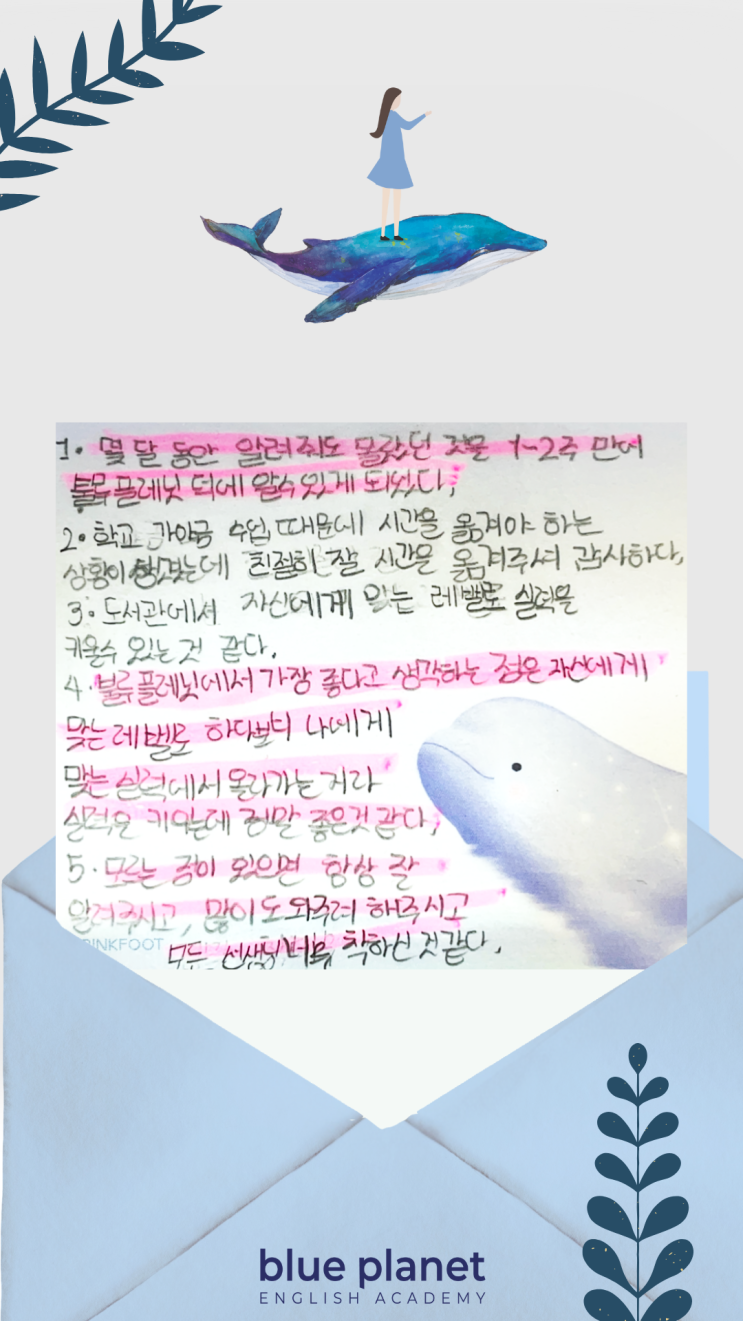 1. 몇 달 동안 알려줘도 몰랐던 것을 1~2주 만에
블루플레닛 덕에 알수있게 되었다,
2. 학교 가야금 수업 때문에 시간을 옮겨야 하는
상황이 생겼는데 친절히 잘 시간을 옮겨주셔 감사하다,
3. 도서관에서 자신에게 맞는 레벨로 실력을
키울수 있는 것 같다.
4. 블루플레닛에서 가장 좋다고 생각하는 점은 자신에게
맞는 레벨로 하다보니 나에게
맞는 실력에서 올라가는 거라
실력을 키우는데 정말 좋은것 같다,
5. 모르는 궁이 있으면 항상 잘
알려주시고, 많이 도와주려 해주시고
PINKFOOT
모두 선생님 너무 착하신 것 같다.
blue planet
ENGLISH ACADEMY